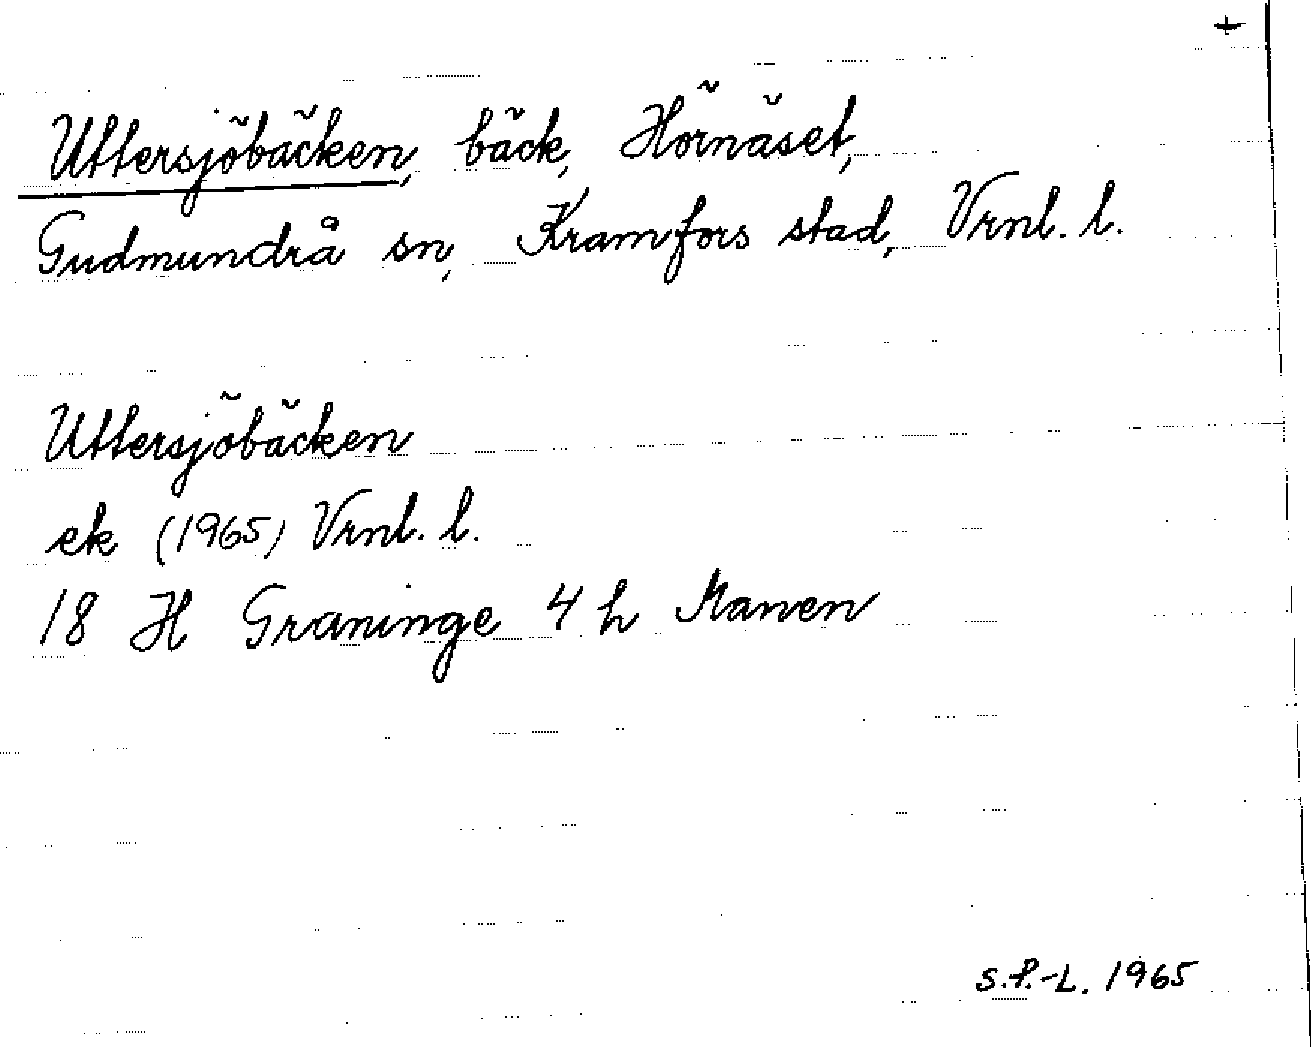 +
Uttersjöbäcken, bäck, Hörnäset,
Gudmundrå sn, Kramfors stad, Vrnl. l.
Uttersjöbäcken
ek (1965) Vrnl. l.
18 H Graninge 4 h Manen
S.P.-L. 1965